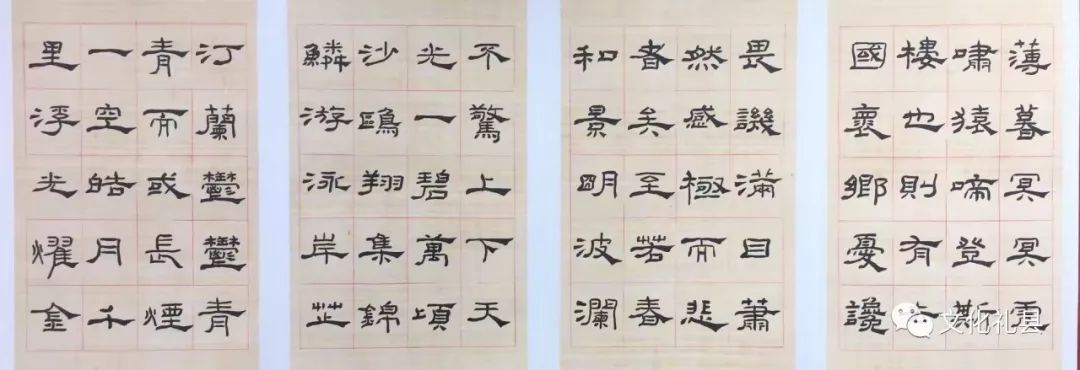 薄暮冥冥虎
嘯猿啼登斯
樓也則有
國褱鄉憂讒
畏譏滿目蕭
然感極而悲
者矣至若春
和景明波瀾
不驚上下天
光一碧萬頃
沙鷗翔集錦
鱗游泳岸芷
汀蘭鬱鬱青
青而或長煙
一空皓月千
里浮光燿金
文化礼县